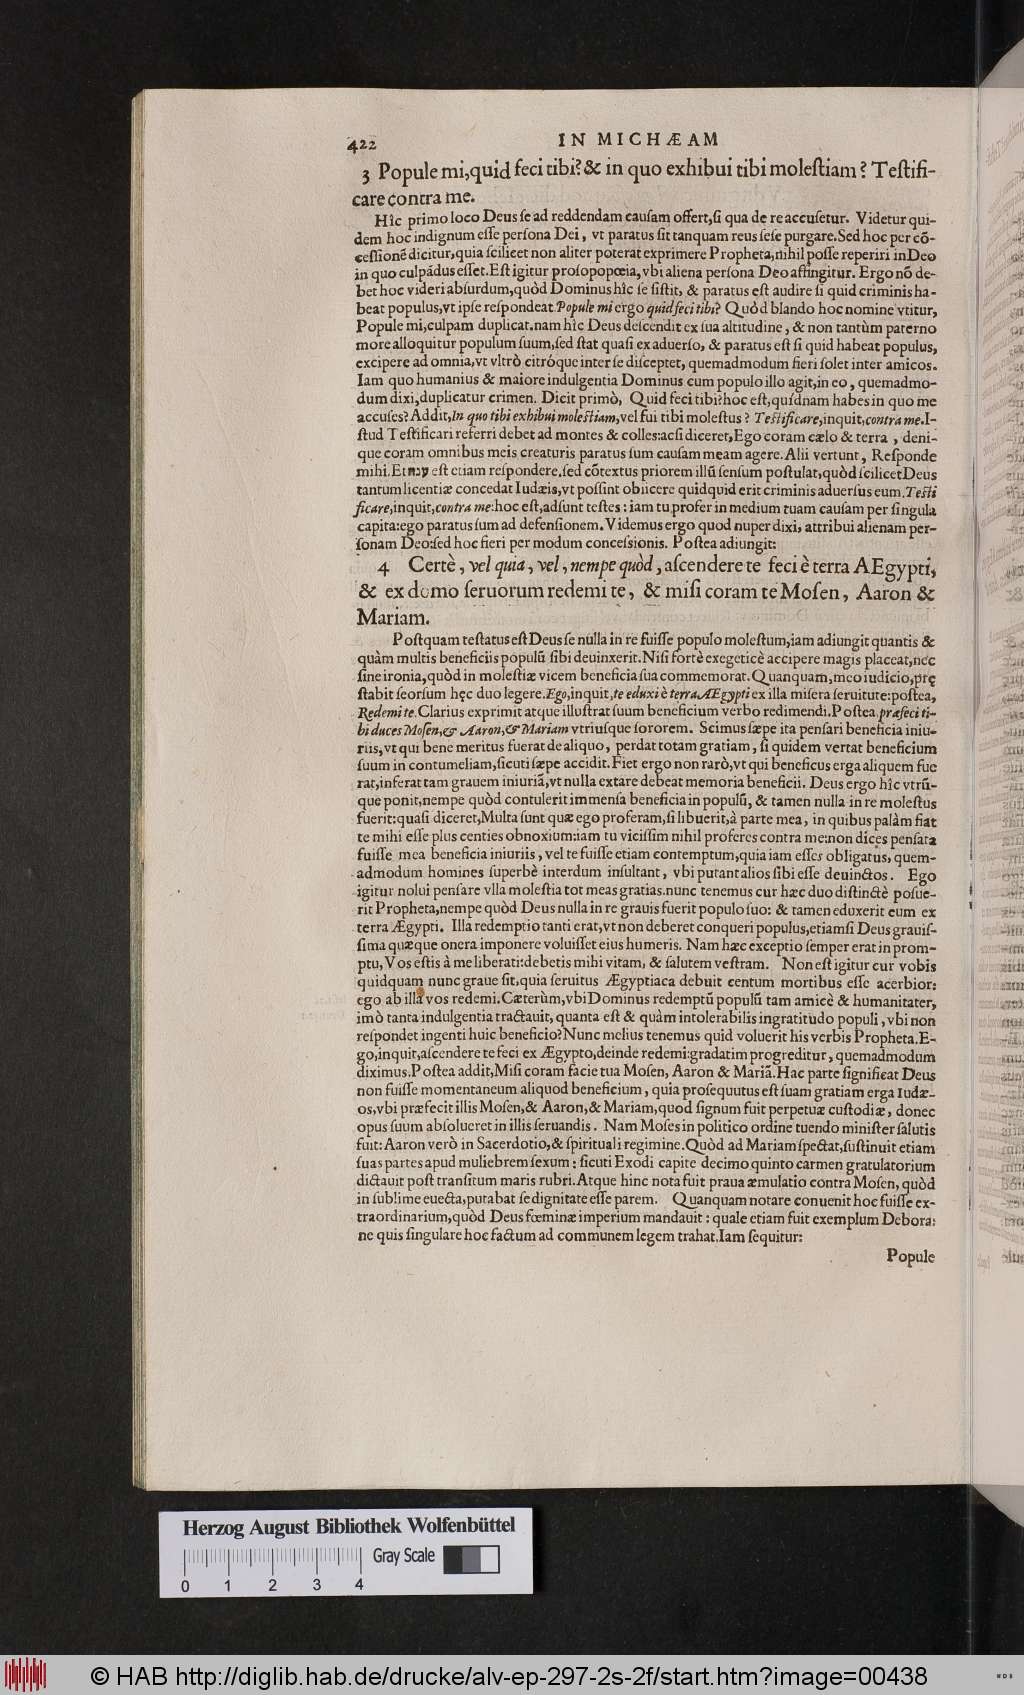 422 IN MICHÆAM
3 Popule mi,quid feci tibi? & in quo exhibui tibi moleſtiam? Teſtifi-
care contra me.
Hîc primo loco Deus ſe ad reddendam cauſam offert,ſi qua de re accuſetur. Videtur qui-
dem hoc indignum eſſe perſona Dei, vt paratus ſit tanquam reus ſeſe purgare.Sed hoc per cõ-
ceſſionẽ dicitur,quia ſcilicet non aliter poterat exprimere Propheta,nihil poſſe reperiri in Deo
in quo culpãdus eſſet.Eſt igitur proſopopœia,vbi aliena perſona Deo affingitur. Ergo nõ de-
bet hoc videri abſurdum,quòd Dominus hîc ſe ſiſtit, & paratus eſt audire ſi quid criminis ha-
beat populus,vt ipſe reſpondeat.Popule mi ergo quid feci tibi? Quòd blando hoc nomine vtitur,
Popule mi,culpam duplicat.nam hîc Deus deſcendit ex ſua altitudine, & non tantùm paterno
more alloquitur populum ſuum,ſed ſtat quaſi ex aduerſo, & paratus eſt ſi quid habeat populus,
excipere ad omnia,vt vltrò citróque inter ſe diſceptet, quemadmodum fieri ſolet inter amicos.
Iam quo humanius & maiore indulgentia Dominus cum populo illo agit,in eo, quemadmo-
dum dixi,duplicatur crimen. Dicit primò, Quid feci tibi?hoc eſt,quidnam habes in quo me
accuſes? Addit,In quo tibi exhibui moleſtiam,vel fui tibi moleſtus? Teſtificare,inquit,contra me.I-
ſtud Teſtificari referri debet ad montes & colles:acſi diceret,Ego coram cælo & terra, deni-
que coram omnibus meis creaturis paratus ſum cauſam meam agere. Alii vertunt, Reſponde
mihi.Et ענה eſt etiam reſpondere.ſed cõtextus priorem illũ ſenſum poſtulat,quòd ſcilicet Deus
tantum licentiæ concedat Iudæis,vt poſſint obiicere quidquid erit criminis aduerſus eum.Teſti
ficare,inquit,contra me:hoc eſt,adſunt teſtes: iam tu profer in medium tuam cauſam per ſingula
capita:ego paratus ſum ad defenſionem. Videmus ergo quod nuper dixi, attribui alienam per-
ſonam Deo:ſed hoc fieri per modum conceſsionis. Poſtea adiungit:
4 Certè, vel quia, vel, nempe quòd, aſcendere te feci è terra AEgypti,
& ex domo ſeruorum redemi te, & miſi coram te Moſen, Aaron &
Mariam.
Poſtquam teſtatus eſt Deus ſe nulla in re fuiſſe populo moleſtum,iam adiungit quantis &
quàm multis beneficiis populũ ſibi deuinxerit.Niſi fortè exegeticè accipere magis placeat,nec
ſine ironia,quòd in moleſtiæ vicem beneficia ſua commemorat.Quanquam,meo iudicio,prę
ſtabit ſeorſum hęc duo legere.Ego,inquit,te eduxi è terra AEgypti ex illa miſera ſeruitute:poſtea,
Redemi te.Clarius exprimit atque illuſtrat ſuum beneficium verbo redimendi.Poſtea,præfeci ti-
bi duces Moſen,& Aaron,& Mariam vtriuſque ſororem. Scimus ſæpe ita penſari beneficia iniu-
riis,vt qui bene meritus fuerat de aliquo, perdat totam gratiam, ſi quidem vertat beneficium
ſuum in contumeliam,ſicuti ſæpe accidit.Fiet ergo non rarò,vt qui beneficus erga aliquem fue
rat,inferat tam grauem iniuriã,vt nulla extare debeat memoria beneficii. Deus ergo hîc vtrũ-
que ponit,nempe quòd contulerit immenſa beneficia in populũ, & tamen nulla in re moleſtus
fuerit:quaſi diceret,Multa ſunt quæ ego proferam,ſi libuerit,à parte mea, in quibus palàm fiat
te mihi eſſe plus centies obnoxium:iam tu viciſſim nihil proferes contra me:non dices penſata
fuiſſe mea beneficia iniuriis, vel te fuiſſe etiam contemptum,quia iam eſſes obligatus, quem-
admodum homines ſuperbè interdum inſultant, vbi putant alios ſibi eſſe deuinctos. Ego
igitur nolui penſare vlla moleſtia tot meas gratias.nunc tenemus cur hæc duo diſtinctè poſue-
rit Propheta,nempe quòd Deus nulla in re grauis fuerit populo ſuo: & tamen eduxerit eum ex
terra Ægypti. Illa redemptio tanti erat,vt non deberet conqueri populus,etiamſi Deus grauiſ-
ſima quæque onera imponere voluiſſet eius humeris. Nam hæc exceptio ſemper erat in prom-
ptu,Vos eſtis à me liberati:debetis mihi vitam, & ſalutem veſtram. Non eſt igitur cur vobis
quidquam nunc graue ſit,quia ſeruitus Ægyptiaca debuit centum mortibus eſſe acerbior:
ego ab illa vos redemi.Cæterùm,vbi Dominus redemptũ populũ tam amicè & humanitater,
imò tanta indulgentia tractauit,quanta eſt & quàm intolerabilis ingratitudo populi, vbi non
reſpondet ingenti huic beneficio? Nunc melius tenemus quid voluerit his verbis Propheta.E-
go,inquit,aſcendere te feci ex Ægypto,deinde redemi:gradatim progreditur, quemadmodum
diximus.Poſtea addit,Miſi coram facie tua Moſen, Aaron & Mariã.Hac parte ſignificat Deus
non fuiſſe momentaneum aliquod beneficium, quia proſequutus eſt ſuam gratiam erga Iudæ-
os,vbi præfecit illis Moſen,& Aaron,& Mariam,quod ſignum fuit perpetuæ cuſtodiæ, donec
opus ſuum abſolueret in illis ſeruandis. Nam Moſes in politico ordine tuendo miniſter ſalutis
fuit:Aaron verò in Sacerdotio,& ſpirituali regimine.Quòd ad Mariam ſpectat,ſuſtinuit etiam
ſuas partes apud muliebrem ſexum: ſicuti Exodi capite decimoquinto carmen gratulatorium
dictauit poſt tranſitum maris rubri.Atque hinc nota fuit praua æmulatio contra Moſen, quòd
in ſublime euecta,putabat ſe dignitate eſſe parem. Quanquam notare conuenit hoc fuiſſe ex-
traordinarium,quòd Deus fœminæ imperium mandauit: quale etiam fuit exemplum Debora:
ne quis ſingulare hoc factum ad communem legem trahat.Iam ſequitur:
Popule
Herzog August Bibliothek Wolfenbüttel
Gray Scale
0 1 2 3 4
© HAB http://diglib.hab.de/drucke/alv-ep-297-2s-2f/start.htm?image=00438